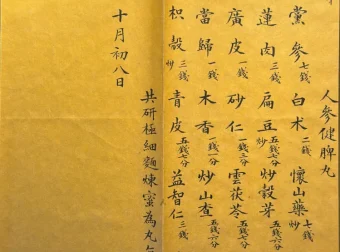 人參健脾丸
黨參七錢 白术二錢 懷山藥炒七錢
蓮肉三錢 扁豆炒五錢七分 炒穀芽五錢六分
廣皮一錢 砂仁一錢三分 雲茯苓五錢七分
當歸一錢 木香一錢一分 炒山查五錢六分
枳殼三錢 青皮五錢七分 益智仁三錢
共研極細麵煉蜜為丸
十月初八日